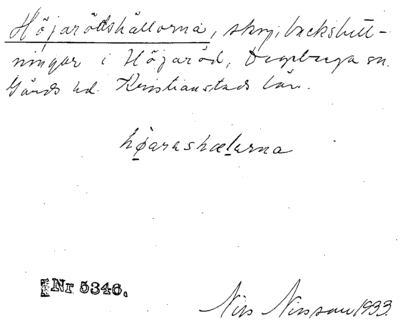 Höjarödshällorna, skogsbackslutt-
ningar i Höjaröd, Degeberga sn.
Gärds hd. Kristianstads län.
höarashælarna
Nr 5346.
Nils Nilsson 1933.